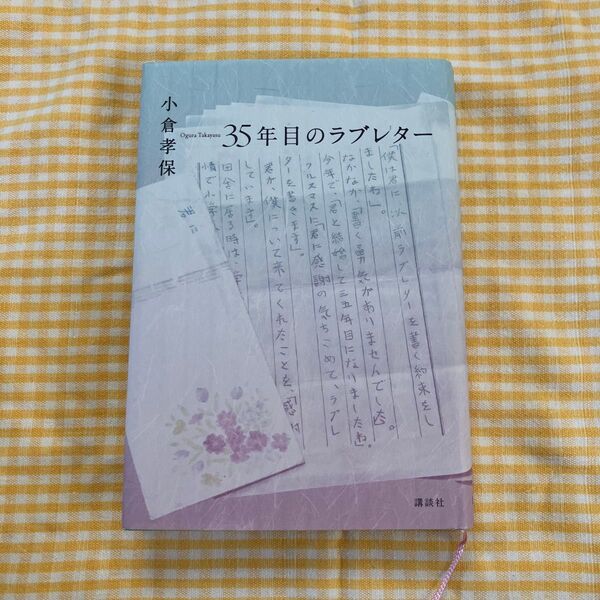 35年目のラブレター
小倉孝保
Ogura Takayasu
「僕は君に以前ラブレターを書く約束をし
ましたね」。
なかなか「書く勇気がありませんでした」。
今年で、「君と結婚して三五年目になりましたね。
クルスマスに「君に感謝の気ちこめて、ラブレ
ターを書きます」。
君が、僕について来てくれたことを、「感は
しています」。
田舎に居る時は、
講談社